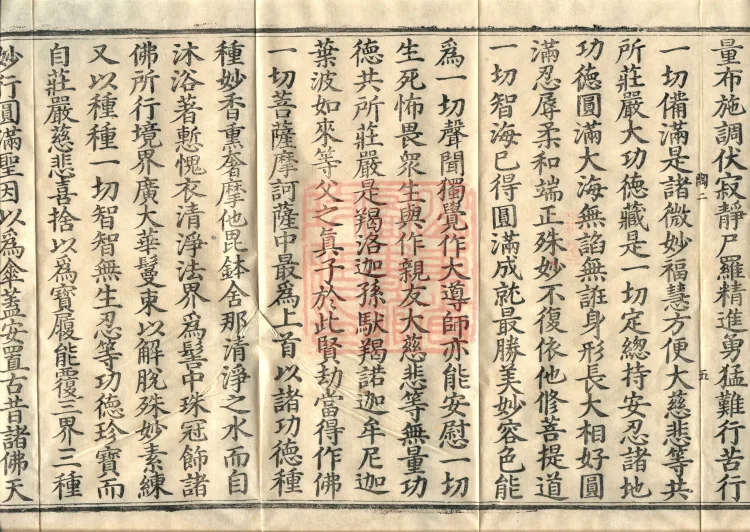 量布施調伏寂靜尸羅精進勇猛難行苦行
陶二
五
一切備滿是諸微妙福慧方便大慈悲等共
所莊嚴大功德藏是一切定緫持安忍諸地
功德圓滿大海無諂無誑身形長大相好圓
滿忍辱柔和端正殊妙不復依他修菩提道
一切智海已得圓滿成就最勝美妙容色能
爲一切聲聞獨覺作大導師亦能安慰一切
生死怖畏衆生與作親友大慈悲等無量功
德共所莊嚴是羯洛迦孫馱羯諾迦牟尼迦
葉波如來等父之真子於此賢劫當得作佛
一切菩薩摩訶薩中最爲上首以諸功德種
種妙香熏奢摩他毘鉢舍那清淨之水而自
沐浴著慙愧衣清淨法界爲髻中珠冠飾諸
佛所行境界廣大華鬘束以解脫殊妙素練
又以種種一切智智無生忍等功德珍寶而
自莊嚴慈悲喜捨以爲寶履能覆三界三種
妙行圓滿聖因以爲傘蓋安置古昔諸佛天